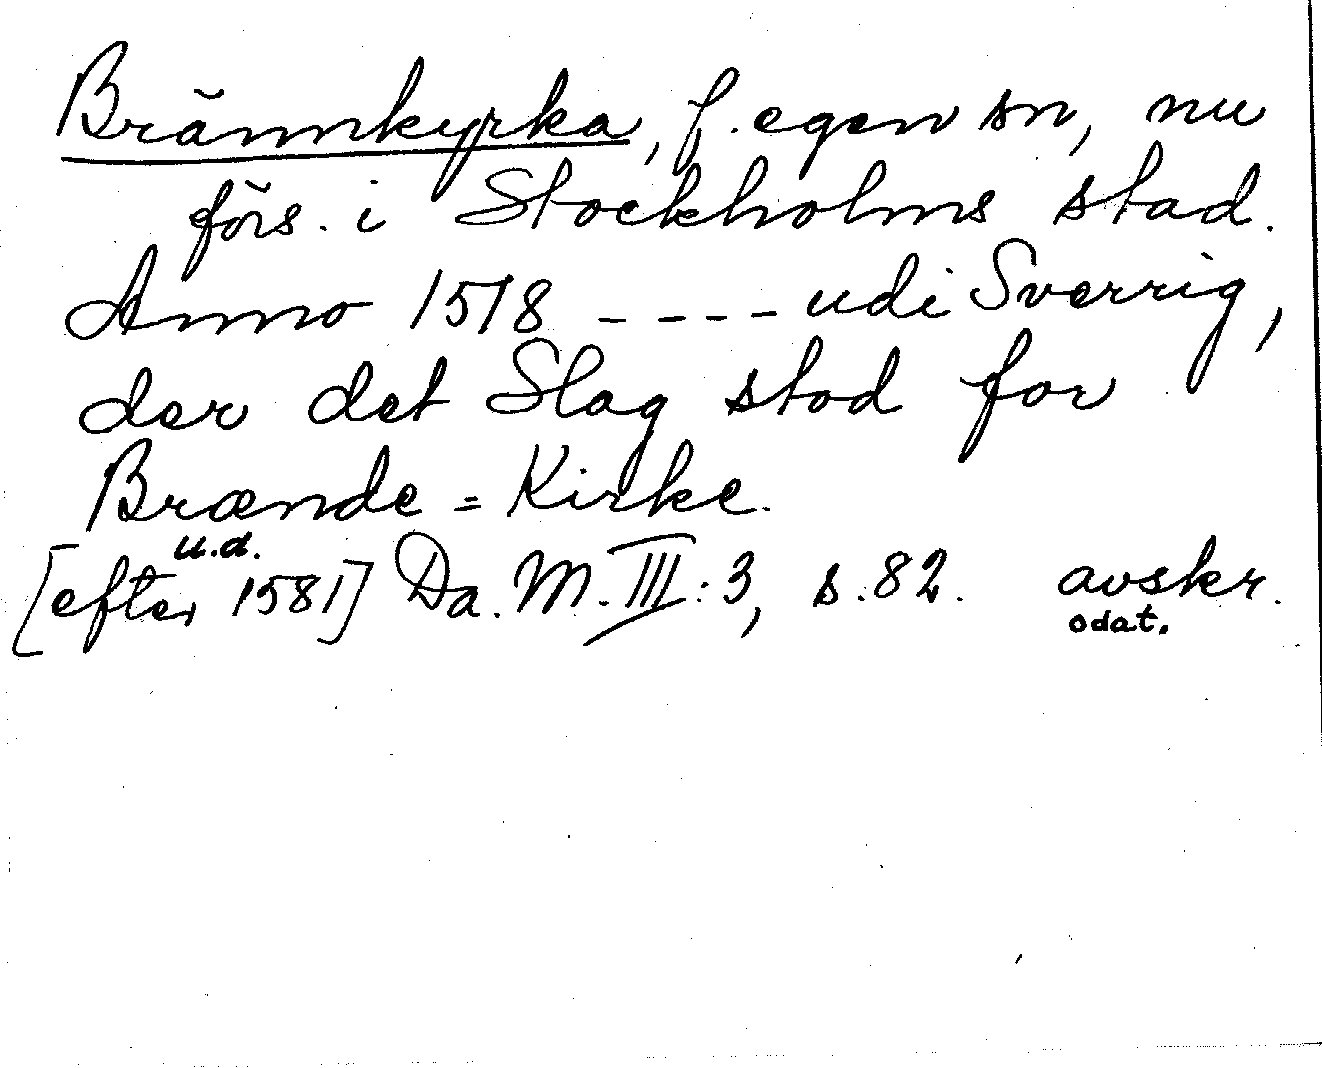 Brännkyrka, f. egen sn, nu
förs. i Stockholms stad.
Anno 1518 ---- udi Sverrig,
der det Slag stod for
Brænde = Kirke.
u.d.
[efter 1581] Da. M. III: 3, s. 82. avskr.
odat.